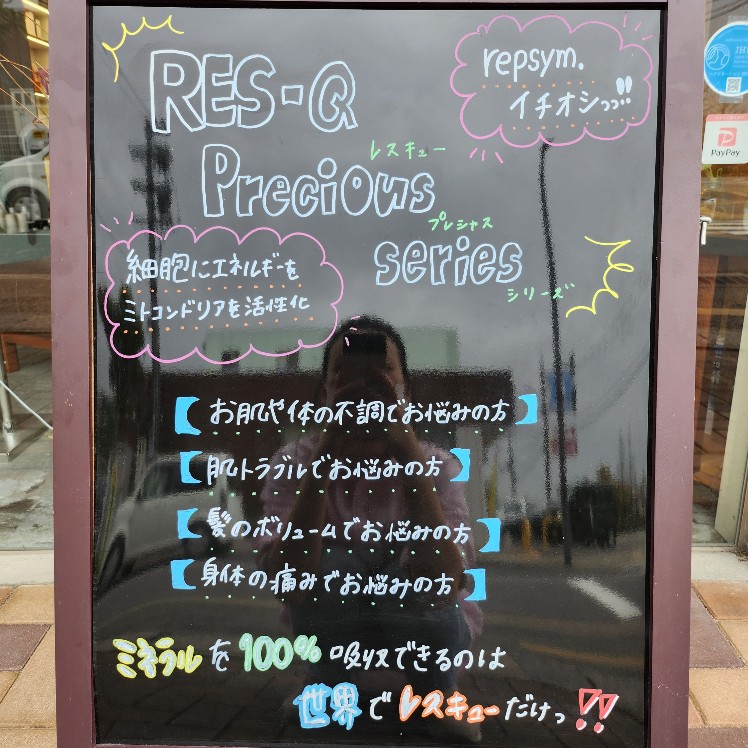 RES-Q
レスキュー
Precious
プレシャス
series
シリーズ
repsym.
イチオシっっ!!
細胞にエネルギーを
ミトコンドリアを活性化
【お肌や体の不調でお悩みの方】
【肌トラブルでお悩みの方】
【髪のボリュームでお悩みの方】
【身体の痛みでお悩みの方】
ミネラルを100%吸収できるのは
世界でレスキューだけっ!!
PayPay